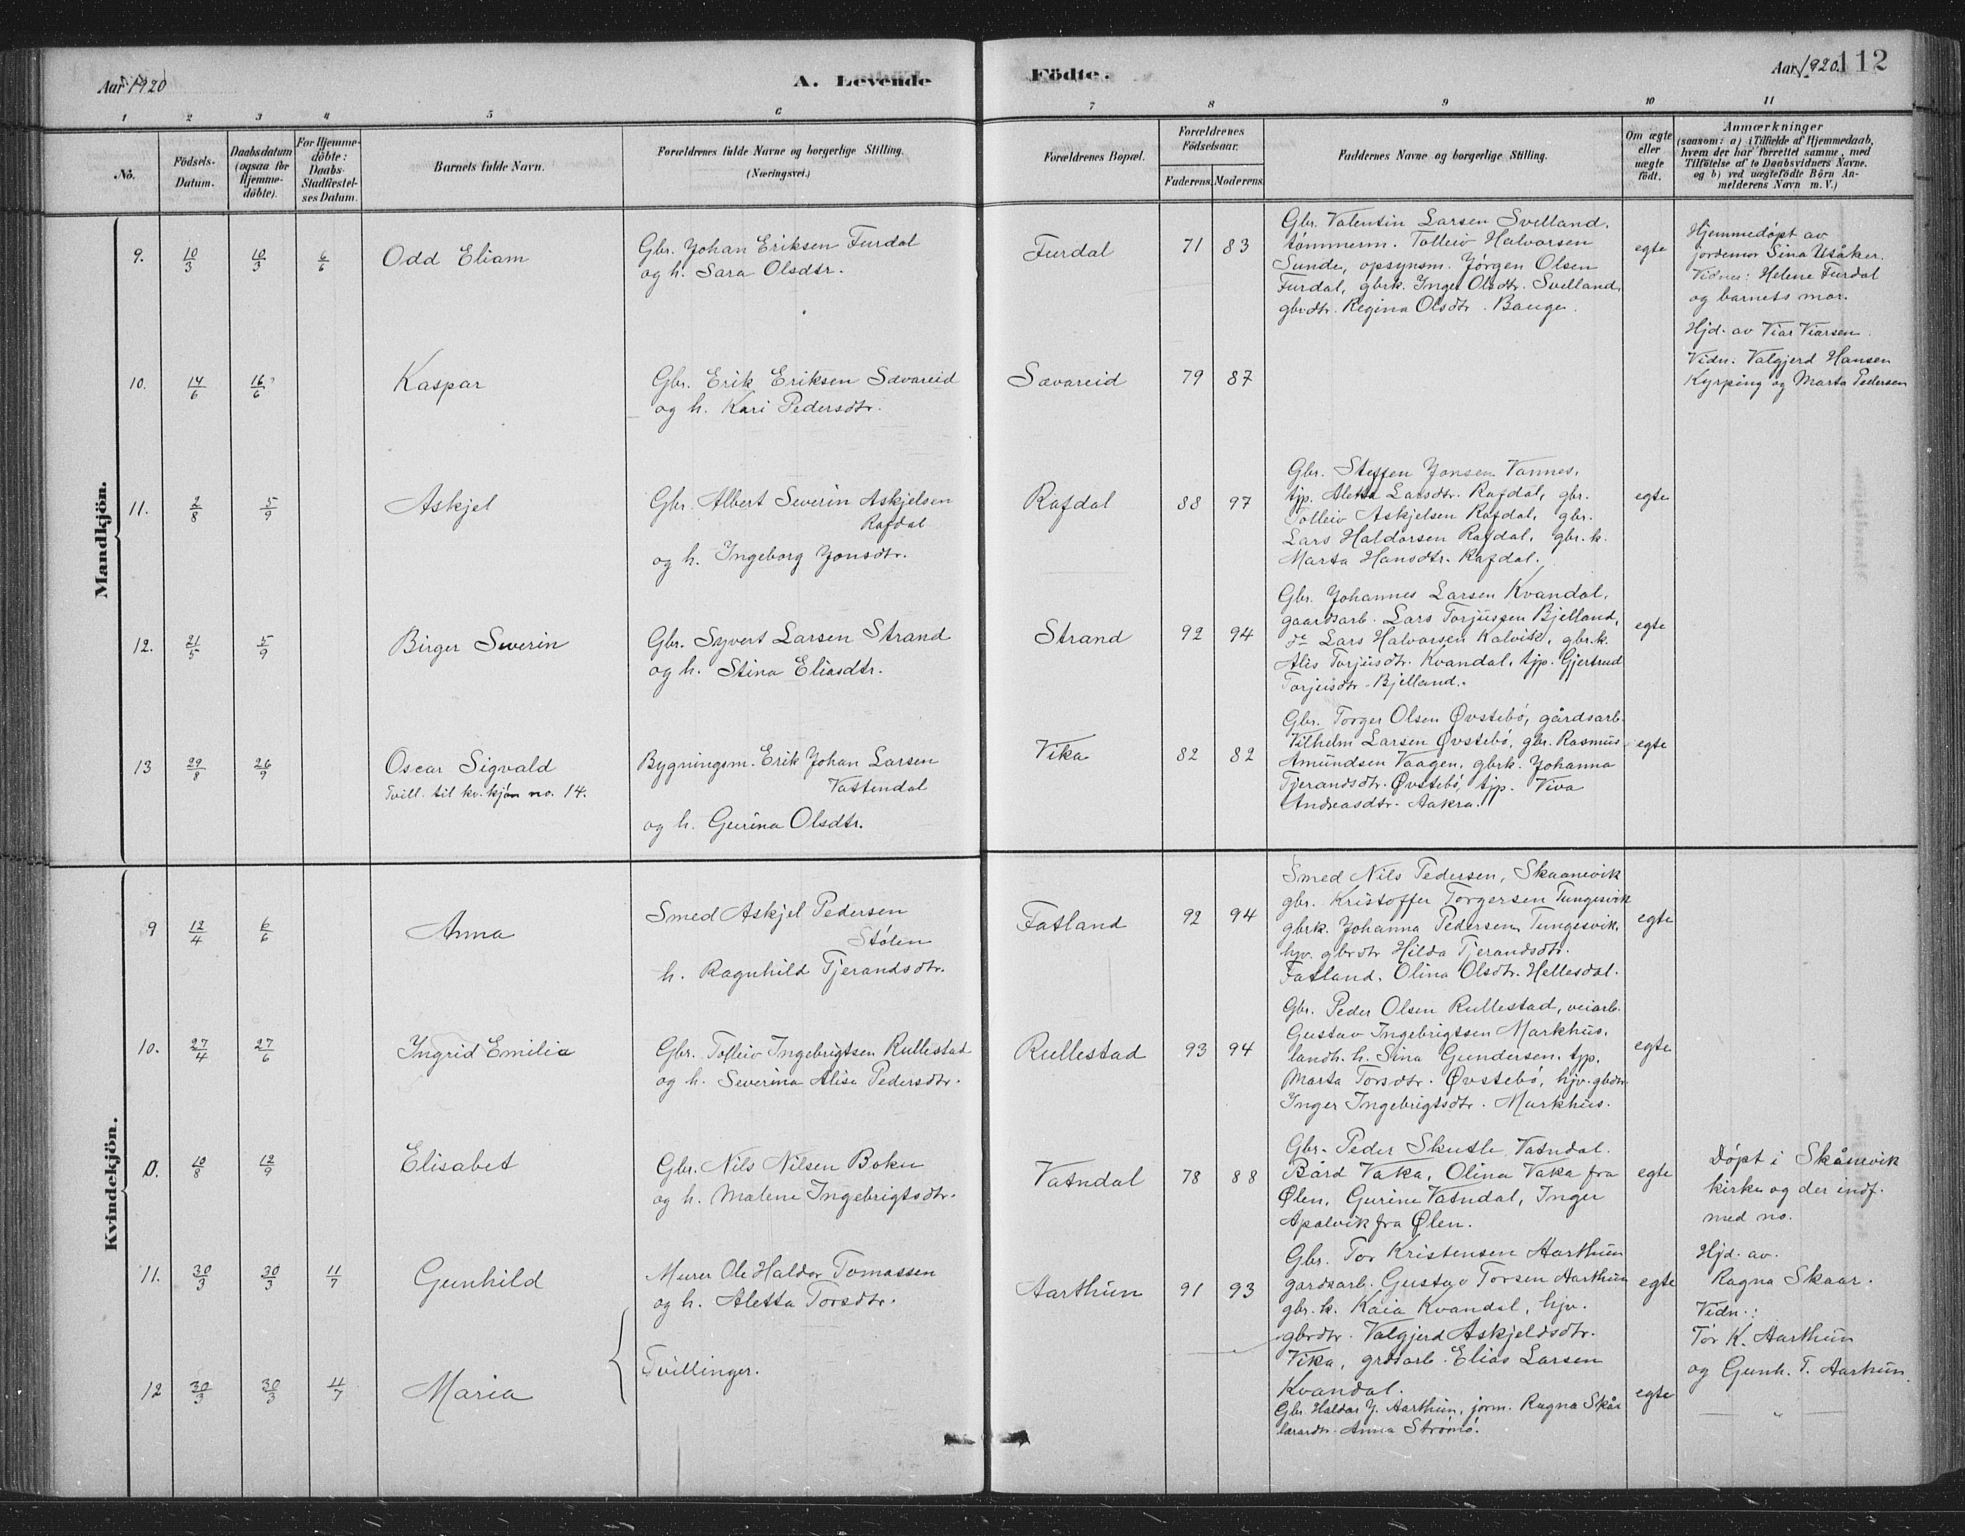 Aar 1920
A. Levende
Födte.
Aar 1920.
112
1 2 3 4 5 6 7 8 9 10 11
No.
Födsels-
Datum.
Daabsdatum
(ogsaa for
Hjemme-
döbte).
For Hjemme-
döbte:
Daabs-
Stadfæstel-
ses Datum.
Barnets fulde Navn.
Forældrenes fulde Navne og borgerlige Stilling.
(Næringsvei.)
Forældrenes Bopæl.
Forældrenes
Födselsaar.
Faderens. Moderens.
Faddernes Navne og borgerlige Stilling.
Om ægte
eller
uægte
født.
Anmærkninger
(saasom: a) i Tilfælde af Hjemmedaab,
hvem der har forrettet samme, med
Tilføielse af to Daabsvidners Navne.
og b) ved uægtefødte Börn An-
melderens Navn m. V.)
Mandkjön.
9. 10/3 10/3 6/6 Odd Eliam
Gbr. Johan Eriksen Furdal
og h. Sara Olsdtr.
Furdal 71 83
Gbr. Valentin Larsen Svelland,
tømmerm. Tolleiv Halvorsen
Sunde, opsynsm. Jörgen Olsen
Furdal, gbrk. Inger Olsdtr. Svelland,
gbrdtr. Regina Olsdtr. Bauge.
egte
Hjemmedøpt av
jordemor Sina Utåker.
Vidner: Helene Furdal
og barnets mor.
10. 14/6 16/6 Kaspar
Gbr. Erik Eriksen Sævareid
og h. Kari Pedersdtr.
Sævareid 79 87
Hjd. av Viar Viarsen
Vidn. Valgjerd Hansen
Kyrping og Marta Pedersen
11. 2/8 5/9 Askjel
Gbr. Albert Severin Askjelsen
Rafdal
og h. Ingeborg Jonsdtr.
Rafdal 88 97
Gbr. Steffen Jonsen Vannes,
tjp. Aletta Larsdtr. Rafdal, gbr.
Tolleiv Askjelsen Rafdal, gbr.
Lars Haldorsen Rafdal, gbr.k.
Marta Hansdtr. Rafdal.
egte
12. 21/5 5/9 Birger Severin
Gbr. Syvert Larsen Strand
og h. Stina Eliasdtr.
Strand 92 94
Gbr. Johannes Larsen Kvandal,
gaardsarb. Lars Torjussen Bjelland,
de Lars Halvorsen Kalvik, gbr.k.
Alis Torjusdtr. Kvandal, tjp. Gjertrud
Torjusdtr. Bjelland.
egte
13 29/8 26/9 Oscar Sigvald
Tvill. til kv. kjön no. 14.
Bygningsm. Erik Johan Larsen
Vattendal
og h. Gurina Olsdtr.
Vika 82 82
Gbr. Torger Olsen Øvstebö, gårdsarb.
Vilhelm Larsen Øvstebö, gbr. Rasmus
Amundsen Vaagen, gbrk. Johanna
Tjerandsdtr. Øvstebö, tjp. Viva
Andreasdtr. Aakra.
egte
Kvindekjön.
9 12/4 6/6 Anna
Smed Askjel Pedersen
Stølen
h. Ragnhild Tjerandsdtr.
Fatland 92 94
Smed Nils Pedersen, Skaanevik
gbr. Kristoffer Torgersen Tungesvik
gbrk. Johanna Pedersen Tungesvik,
hjv. gbrdtr Hilda Tjerandsdtr.
Fatland. Olina Olsdtr. Hellesdal.
egte
10. 27/4 27/6 Ingrid Emilie
Gbr. Tolleiv Ingebrigtsen Rullestad
og h. Severina Alisa Pedersdtr.
Rullestad 93 94
Gbr. Peder Olsen Rullestad, veiarb.
Gustav Ingebrigtsen Markhus,
landh. h. Sina Gundersen, tjp.
Marta Torsdtr. Øvstebö, hjv. gbdtr.
Inger Ingebrigtsdtr. Markhus.
egte
0. 10/8 12/9 Elisabet
Gbr. Nils Nilsen Boku
og h. Malene Ingebrigtsdtr.
Vatndal 78 88
Gbr. Peder Skutle Vatndal.
Bård Vaka, Olina Vaka fra
Ølen, Gurine Vatndal, Inger
Apalvik fra Ølen.
egte
Døpt i Skånevik
kirke og der indf.
med no.
11. 30/3 30/3 11/7 Gunhild
Murer Ole Haldor Tomassen
og h. Aletta Torsdtr.
Aarthun 91 93
Gbr. Tor Kristensen Aarthun
gardsarb. Gustav Torsen Aarthun
gbr. k. Kaia Kvandal, hjv.
gbrdtr. Valgjerd Askjeldsdtr.
Vika, grdsarb. Elias Larsen
Kvandal.
egte
Hjd. av.
Ragna Skaar.
Vidn.:
Tor K. Aarthun
og Gunh. T. Aarthun.
12 30/3 30/3 11/7 Maria
Tvillinger.
Gbr. Haldor J. Aarthun, jorm. Ragna Skår
lærardtr. Anna Strømö.
egte
— „ —